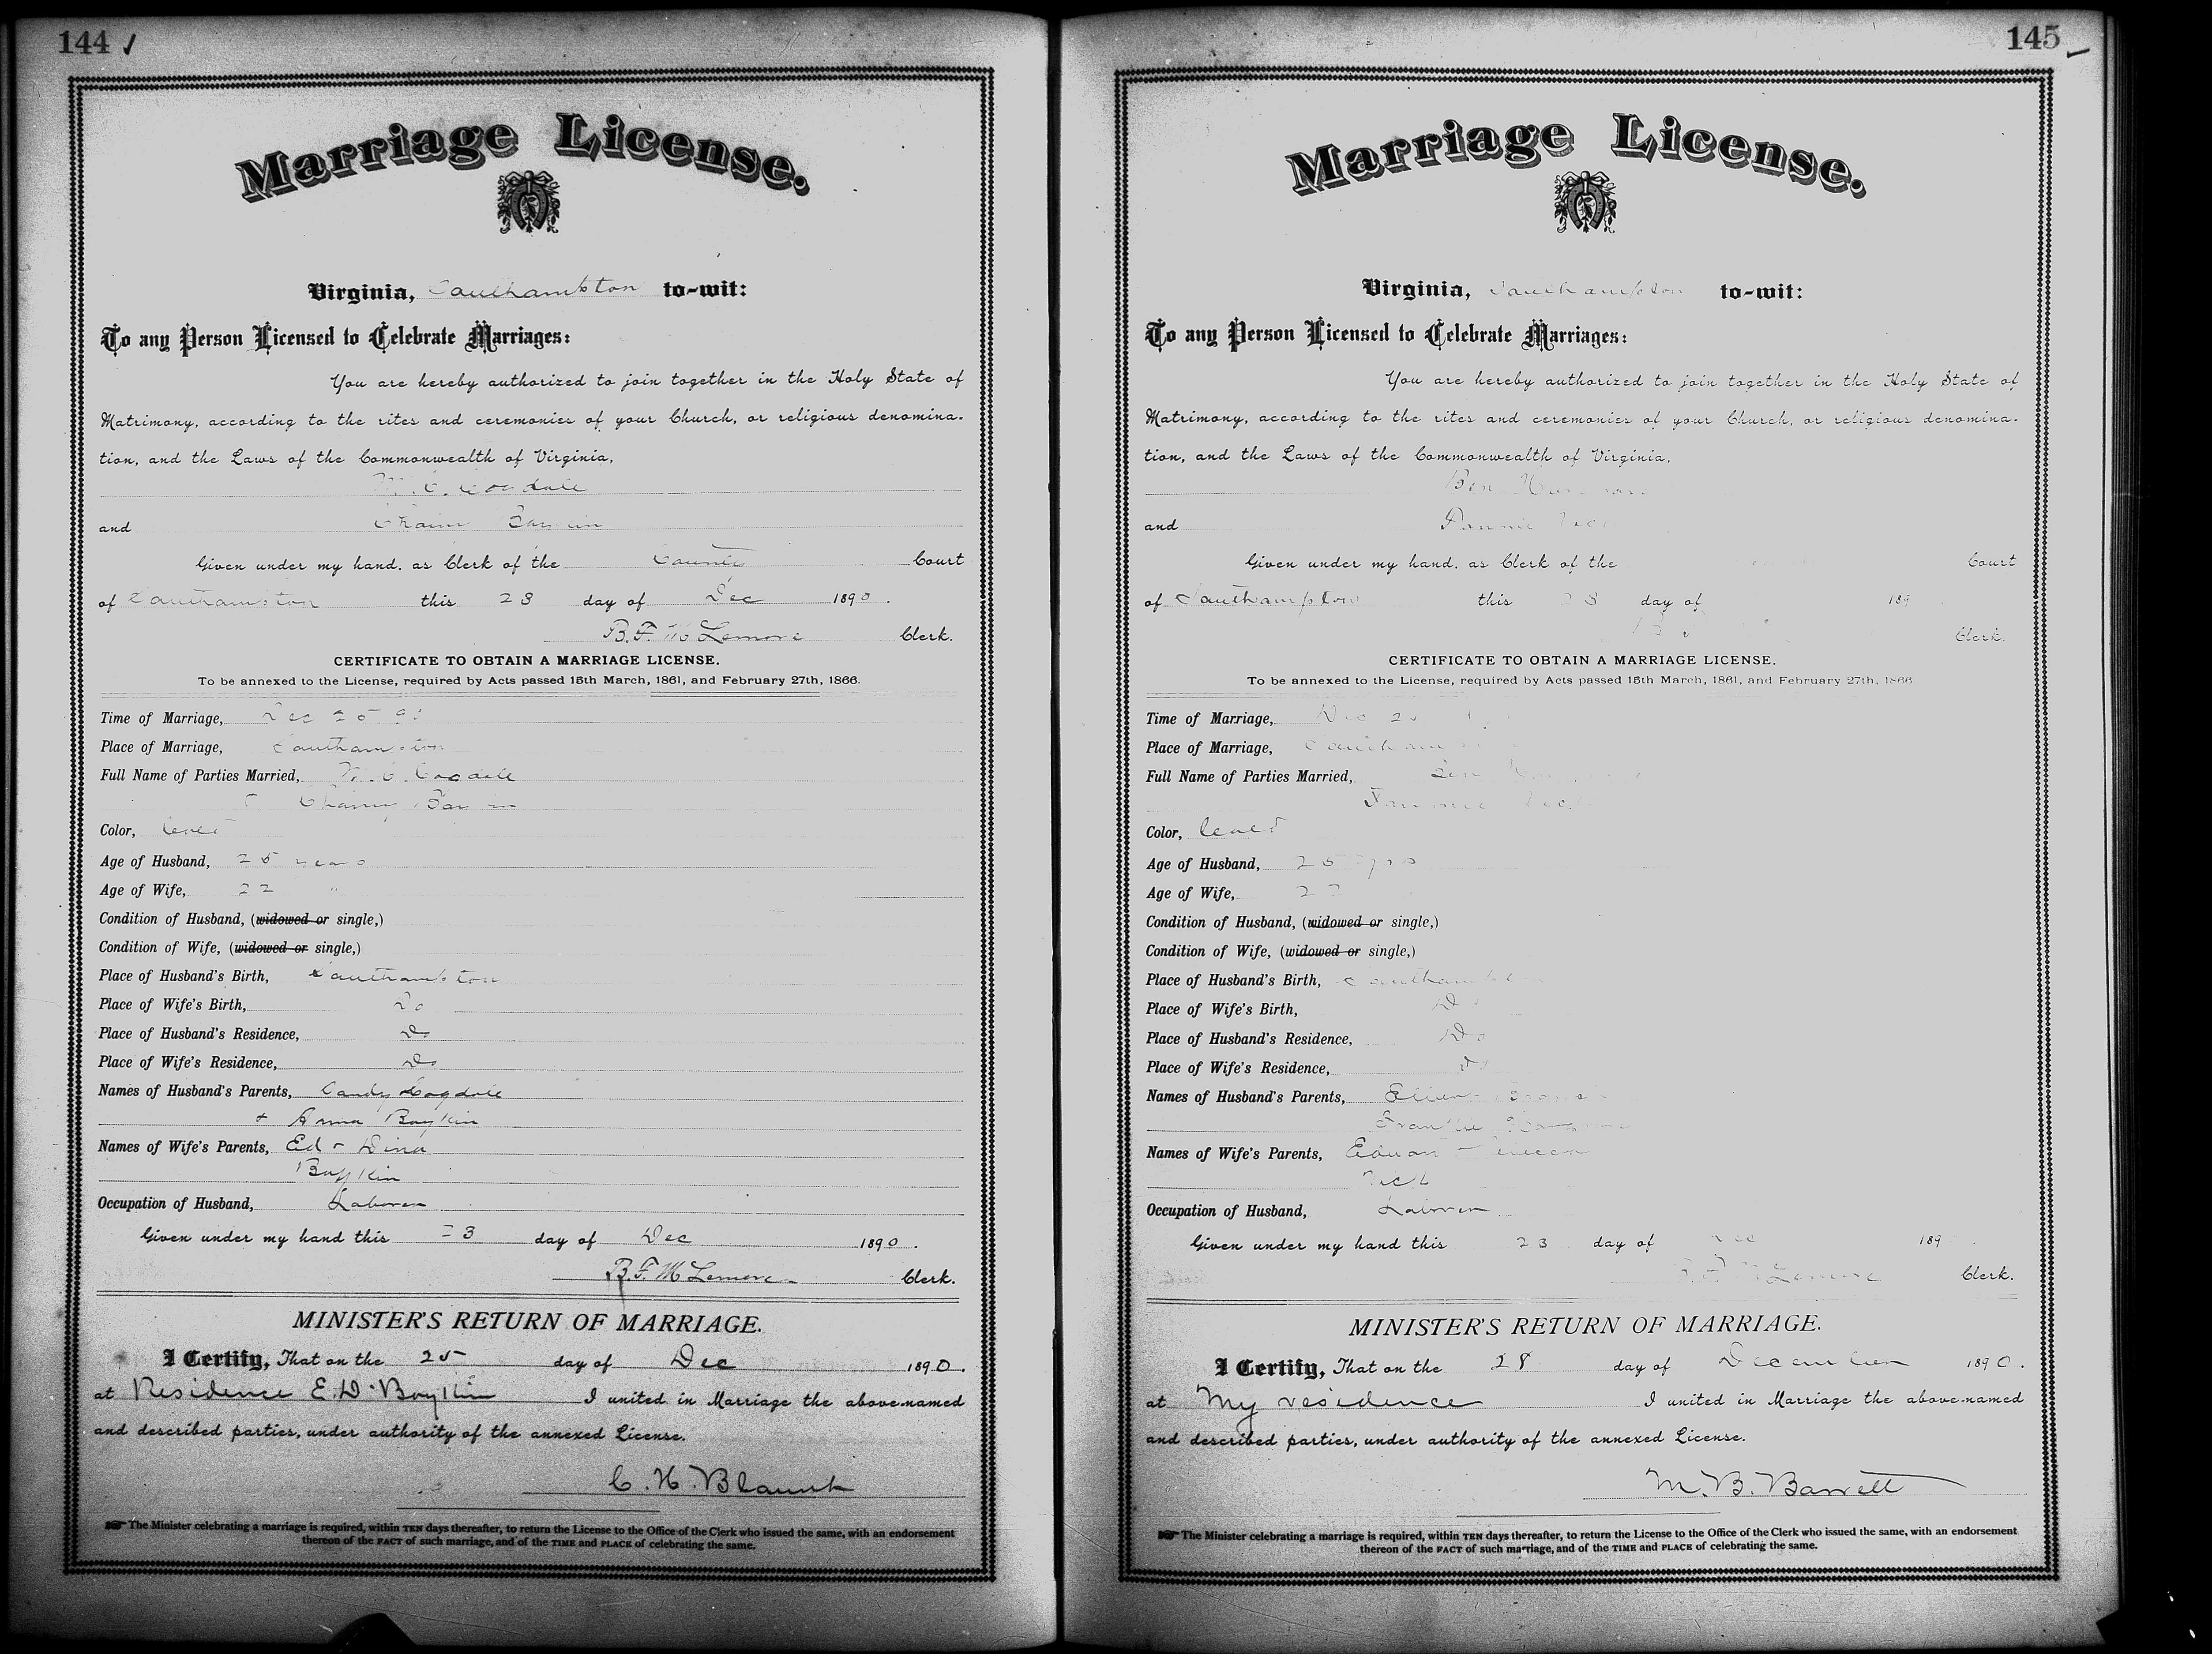 144
Marriage License.
Virginia, Southampton to-wit:
To any Person Licensed to Celebrate Marriages:
You are hereby authorized to join together in the Holy State of
Matrimony, according to the rites and ceremonies of your Church, or religious denomina-
tion, and the Laws of the Commonwealth of Virginia,
and
Given under my hand, as Clerk of the County Court
of Southampton this 23 day of Dec 1890.
B. F. McLemore Clerk.
CERTIFICATE TO OBTAIN A MARRIAGE LICENSE.
To be annexed to the License, required by Acts passed 15th March, 1861, and February 27th, 1866.
Time of Marriage, Dec 25 90
Place of Marriage, Southampton
Full Name of Parties Married,
Color,
Age of Husband, 25 years
Age of Wife, 22 "
Condition of Husband, (widowed or single,)
Condition of Wife, (widowed or single,)
Place of Husband's Birth, Southampton
Place of Wife's Birth, Do
Place of Husband's Residence, Do
Place of Wife's Residence, Do
Names of Husband's Parents,
Boykin
Names of Wife's Parents, Ed & Dina
Boykin
Occupation of Husband, Laborer
Given under my hand this 23 day of Dec 1890.
B. F. McLemore Clerk.
MINISTER'S RETURN OF MARRIAGE.
I Certify, That on the 25 day of Dec 1890.
at Residence E. D. Boykin I united in Marriage the above-named
and described parties, under authority of the annexed License.
C. H.
The Minister celebrating a marriage is required, within TEN days thereafter, to return the License to the Office of the Clerk who issued the same, with an endorsement
thereon of the FACT of such marriage, and of the TIME and PLACE of celebrating the same.
145
Marriage License.
Virginia, Southampton to-wit:
To any Person Licensed to Celebrate Marriages:
You are hereby authorized to join together in the Holy State of
Matrimony, according to the rites and ceremonies of your Church, or religious denomina-
tion, and the Laws of the Commonwealth of Virginia,
Ben
and
Given under my hand, as Clerk of the Court
of Southampton this 23 day of 189
Clerk.
CERTIFICATE TO OBTAIN A MARRIAGE LICENSE.
To be annexed to the License, required by Acts passed 15th March, 1861, and February 27th, 1866
Time of Marriage, Dec
Place of Marriage,
Full Name of Parties Married, Ben
Color,
Age of Husband, 25 yrs
Age of Wife,
Condition of Husband, (widowed or single,)
Condition of Wife, (widowed or single,)
Place of Husband's Birth, Southampton
Place of Wife's Birth, Do
Place of Husband's Residence, Do
Place of Wife's Residence, Do
Names of Husband's Parents,
Names of Wife's Parents,
Occupation of Husband, Laborer
Given under my hand this 23 day of Dec 189
B. F. McLemore Clerk.
MINISTER'S RETURN OF MARRIAGE.
I Certify, That on the 28 day of December 1890.
at My residence I united in Marriage the above-named
and described parties, under authority of the annexed License.
M. B. Barrett
The Minister celebrating a marriage is required, within TEN days thereafter, to return the License to the Office of the Clerk who issued the same, with an endorsement
thereon of the FACT of such marriage, and of the TIME and PLACE of celebrating the same.